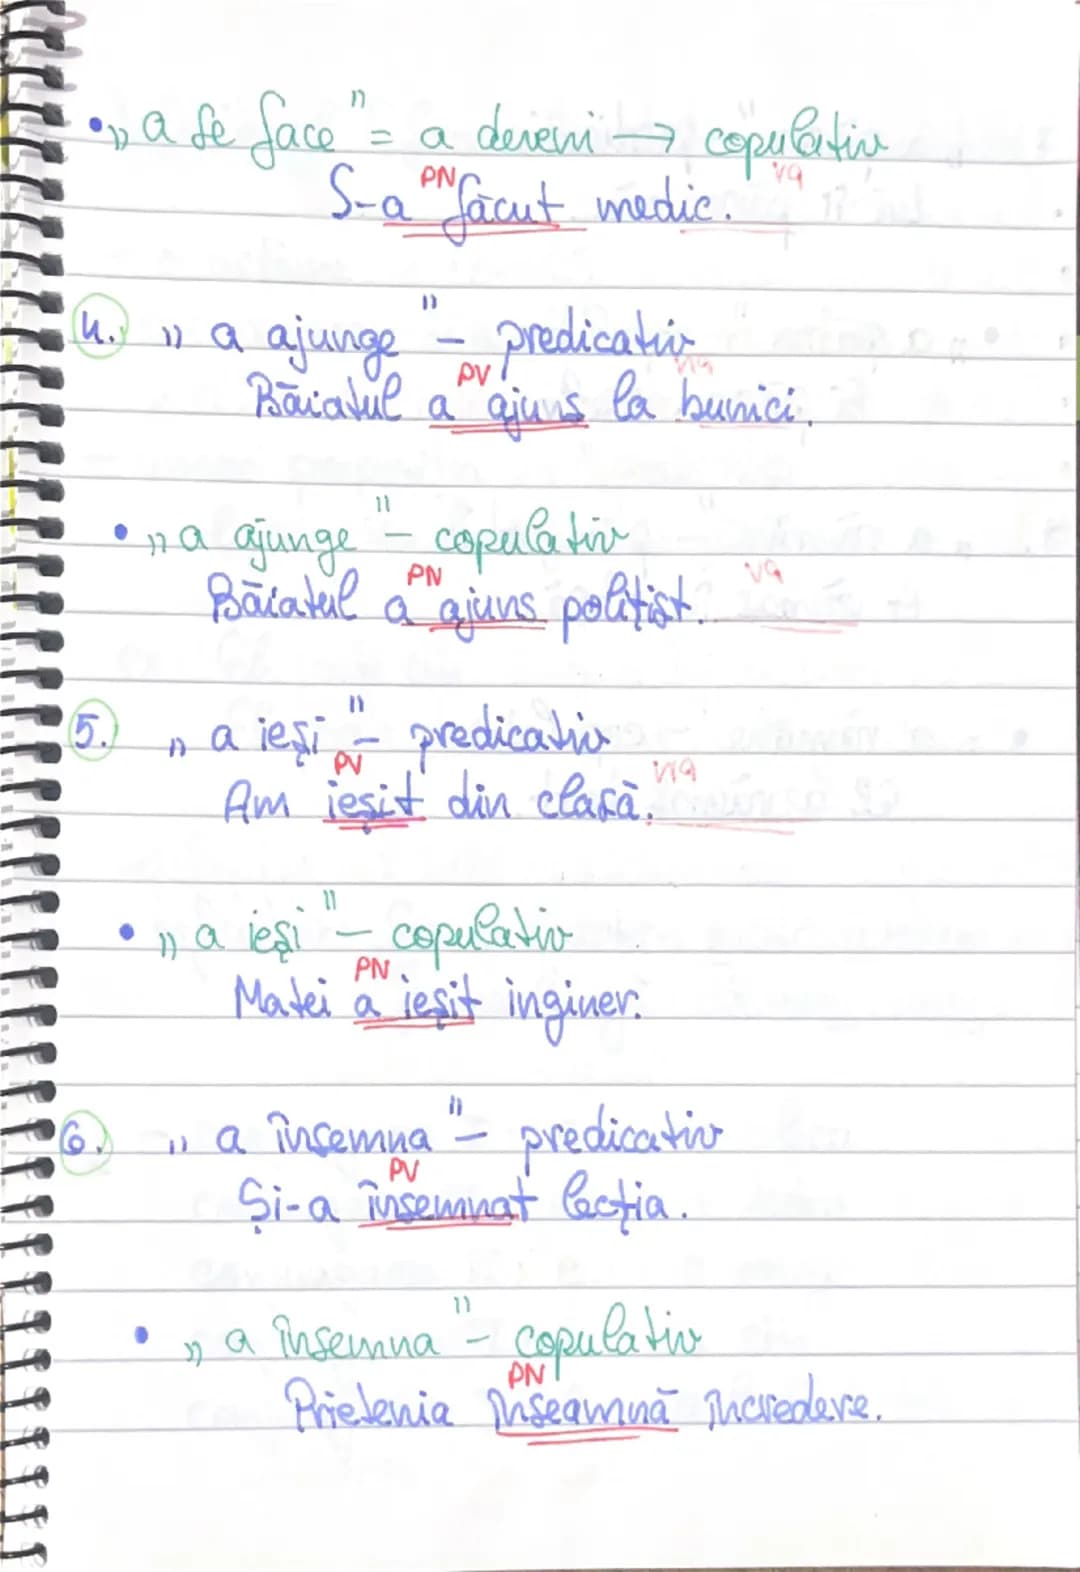 • „a se face" = a deveni → copulativ
PN
S-a făcut medic.
4. „a ajunge" – predicativ
PV
Băiatul a ajuns la bunici.
• „a ajunge" – copulativ
PN
Băiatul a ajuns polițist.
5. „a ieși" – predicativ
PV
Am ieșit din clasă.
• „a ieși" – copulativ
PN
Matei a ieșit inginer.
6. „a însemna" – predicativ
PV
Și-a însemnat lecția.
• „a însemna" – copulativ
PN
Prietenia înseamnă încredere.